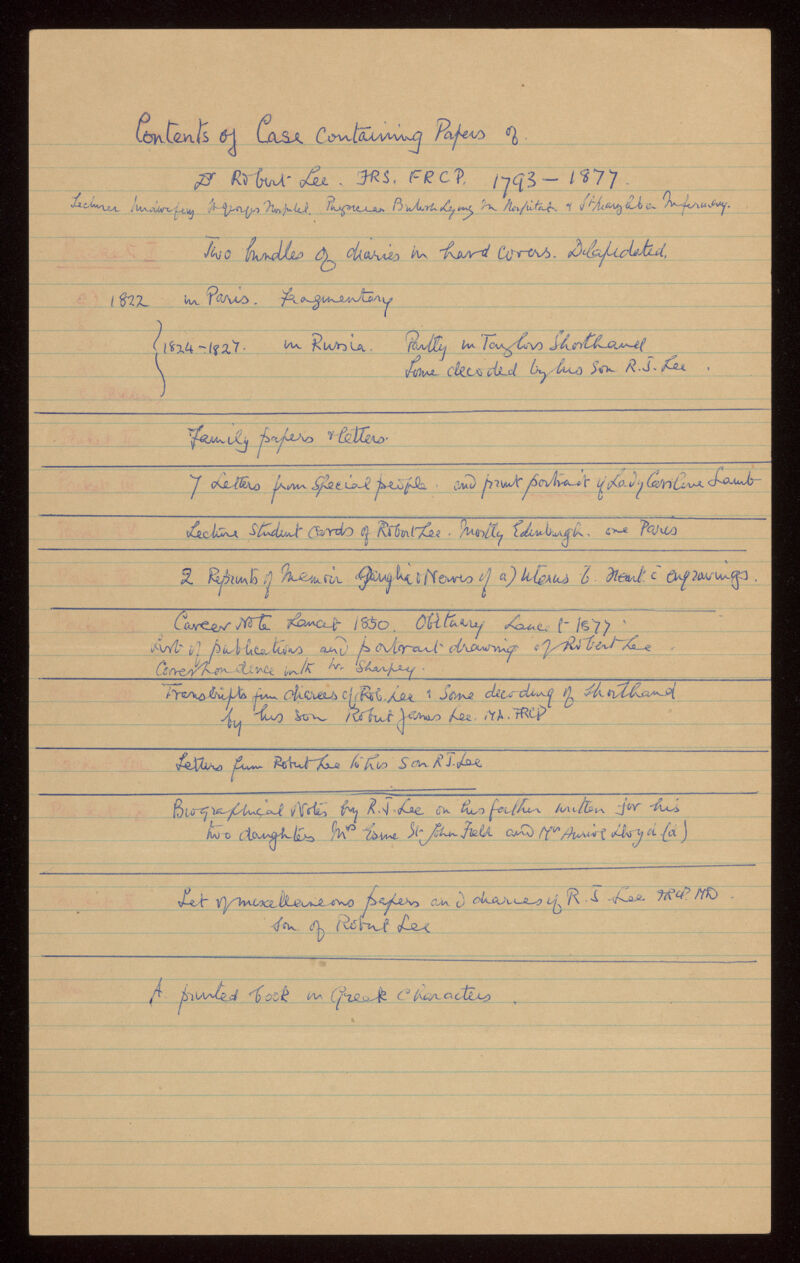 Contents of Case containing Papers of.
Dr Robert Lee. FRS. FRCP. 1793 – 1877.
Lecturer Midwifery St Georges Hospital. Physician British Lying In Hospital & St Marylebone Infirmary.
Packet I
Two bundles of diaries in hard covers. Dilapidated.
1822 in Paris. Fragmentary
1824–1827. in Russia. Partly in Taylors Shorthand
Some decoded by his son R.J. Lee.
Packet II
Family papers & letters.
Packet III
7 Letters from special people. and print portrait of Lady Caroline Lamb
Lecture Student Cards of Robert Lee. Mostly Edinburgh. one Paris
2 Reprints of Memoir Ganglia & Nerves of a) Uterus b. Heart c̄ engravings.
Career Note Lancet 1850. Obituary Lancet 1877.
List of publications and portrait drawing of Robert Lee.
Correspondence with Sharpey.
Transcripts from diaries of Rob. Lee & Some decoding of shorthand
by his son Robert James Lee. MA. FRCP
Packet VIII
Letters from Robert Lee to his Son R J. Lee
Biographical Notes by R.J. Lee on his father written for his
two daughters Mrs Esme St John Field and Mrs Lloyd (d)
Packet X
Set of miscellaneous papers and diaries of R. J. Lee FRCP. MD.
Son of Robert Lee
A printed book in Greek Characters.